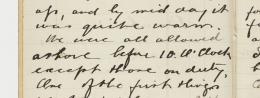 up, and by mid day it
was quite warm.
We were all allowed
ashore before 10.O'Clock
except those on duty,
One of the first things